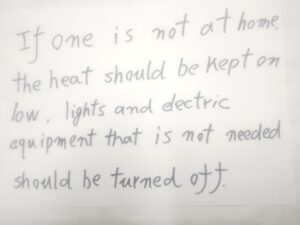 If one is not at home,
the heat should be kept on
low, lights and electric
equipment that is not needed
should be turned off.